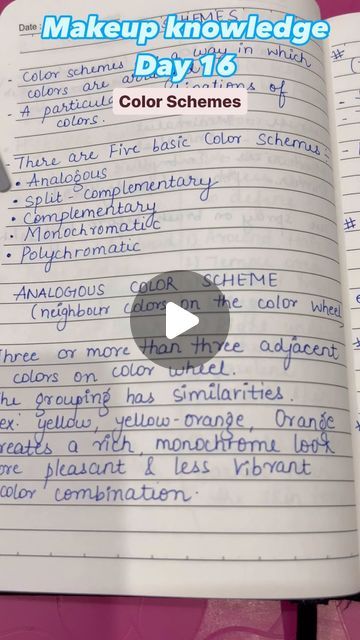 Makeup knowledge
Day 16
Color Schemes
Date :
SCHEMES
- Color schemes a way in which
colors are
- A particular of
colors.
- There are Five basic Color Schemes:-
• Analogous
• Split-Complementary
• Complementary
• Monochromatic
• Polychromatic
ANALOGIOUS COLOR SCHEME
(neighbour colors on the color wheel
Three or more than three adjacent
colors on color wheel.
he grouping has similarities.
ex: yellow, yellow-orange, Orange
reates a rich, monochrome look
ore pleasant & less vibrant
color combination.